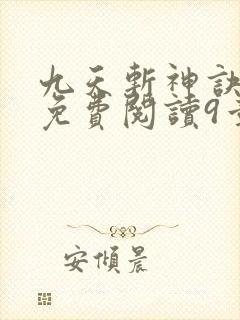 九天斬神訣
免費閱讀9
安傾晨